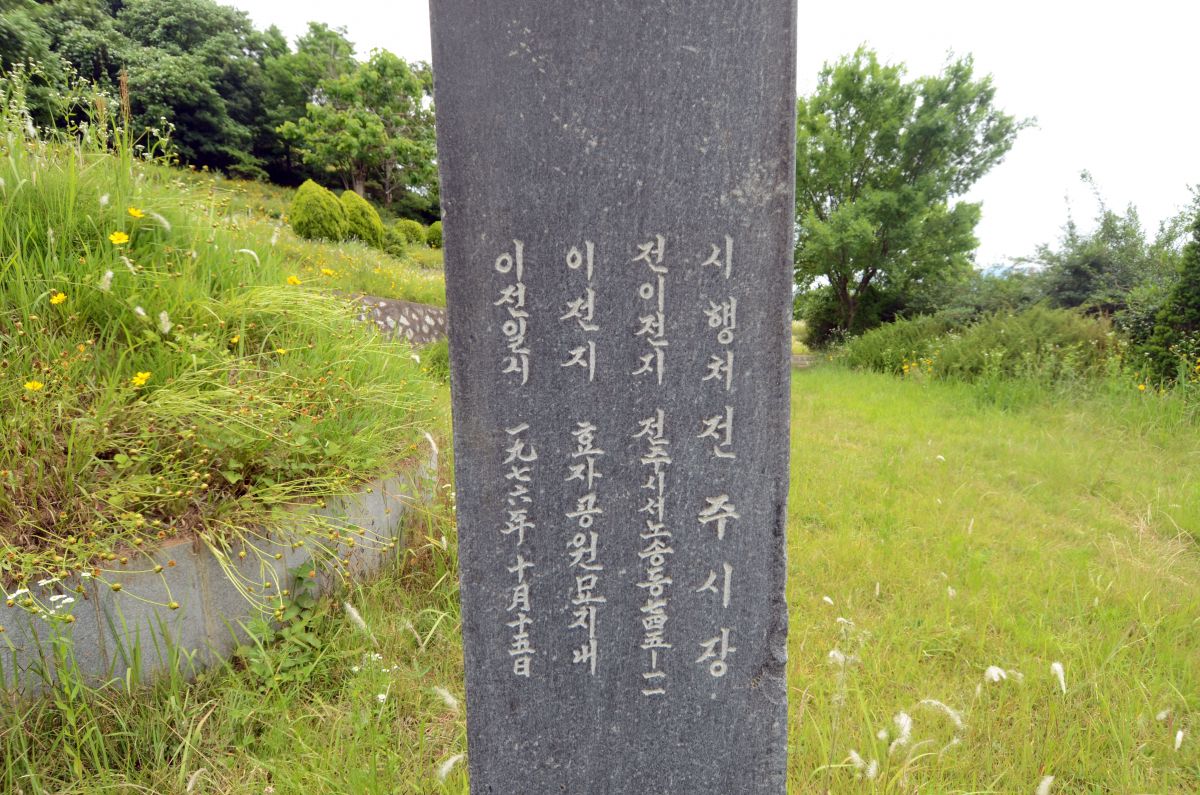 시행처전주시장
전이전지 전주시서노송동七四五-一二
이전지 효자공원묘지내
이전일시 一九七六年 十月十五日